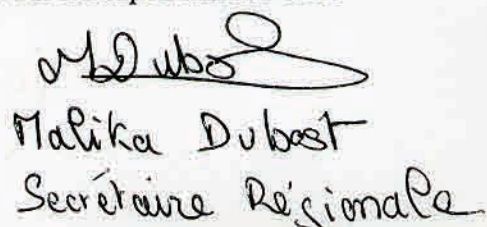 MDubo
Malika Dubost
Secrétaire Régionale